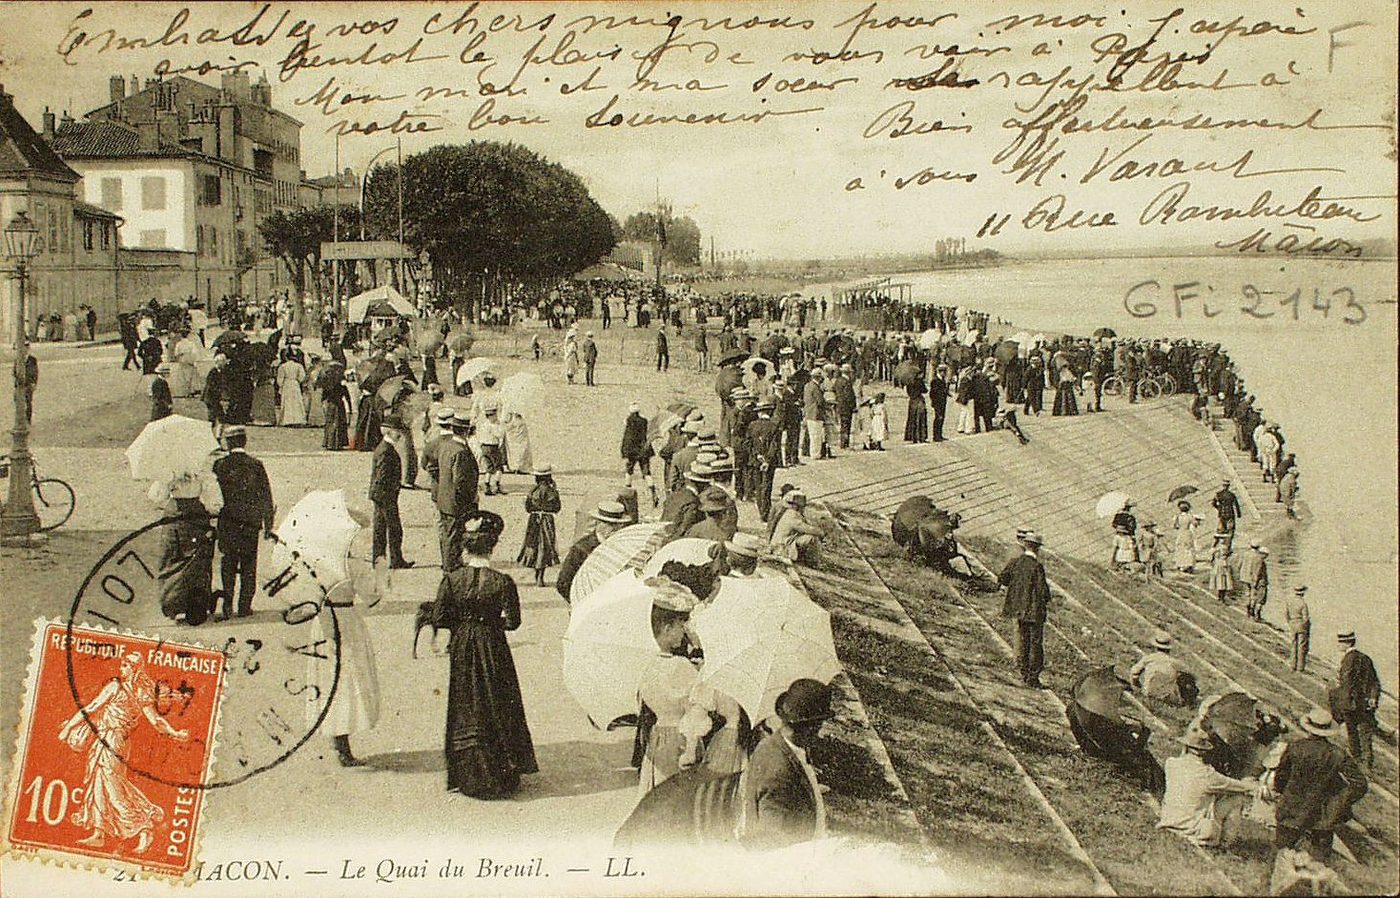 Embrassez vos chers mignons pour moi. J'espère
avoir bientot le plaisir de vous voir à
Mon mari et ma sœur se rappellent à
votre bon souvenir.
Bien affectueusement
à vous M. Varaut
11 Rue Rambuteau
Mâcon
F
6Fi 2143
RÉPUBLIQUE FRANÇAISE
10c
POSTES
MACON
21 MACON. — Le Quai du Breuil. — LL.